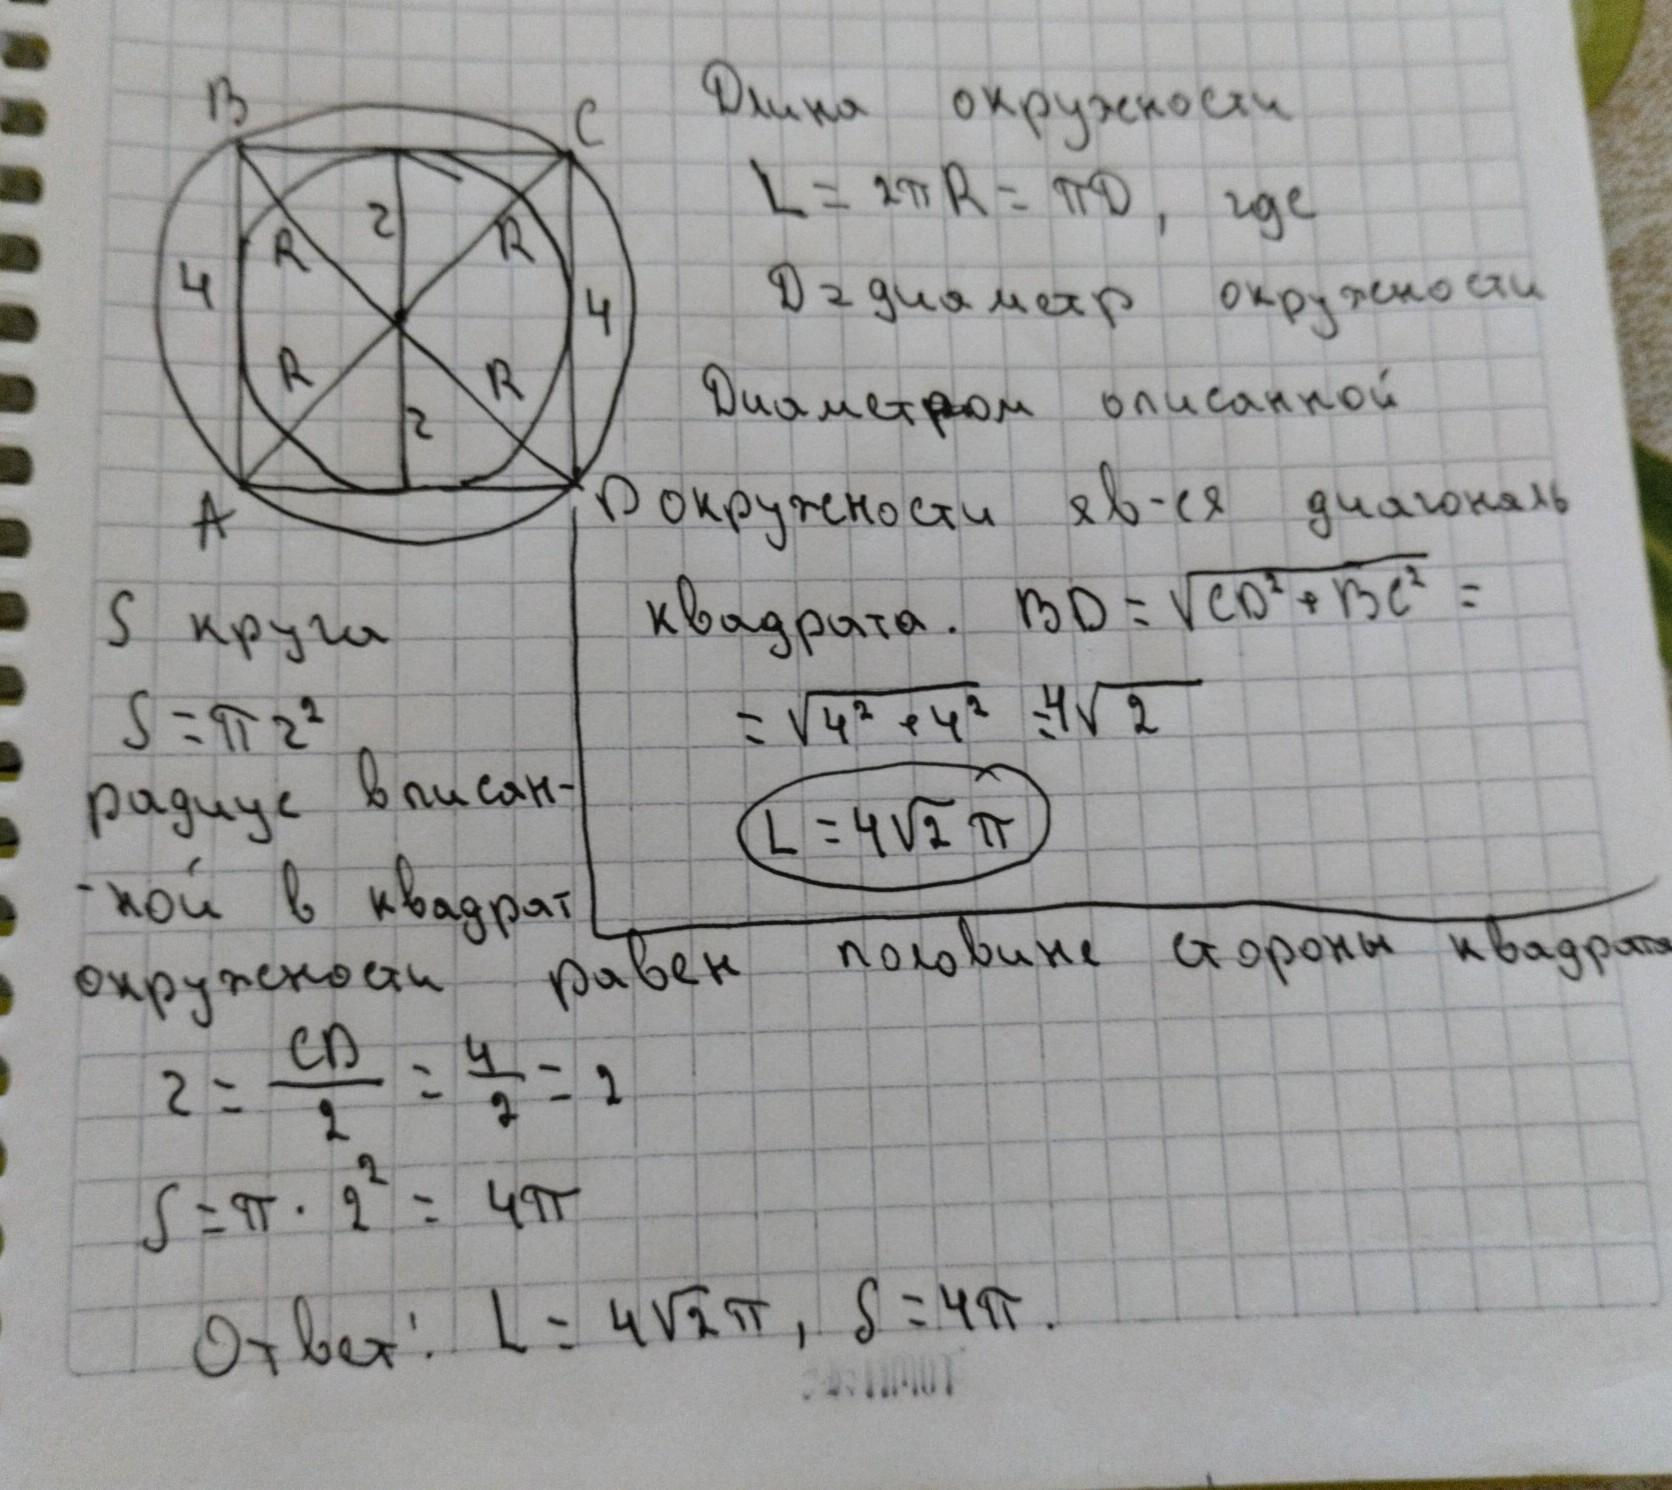 B
C
2
R
R
4
4
R
R
2
A
D
Длина окружности
L = 2πR = πD, где
D = диаметр окружности
Диаметром описанной
окружности яв-ся диагональ
квадрата. BD = √CD² + BC² =
= √4² + 4² = 4√2
L = 4√2 π
S круга
S = π r²
радиус вписан-
-ной в квадрат
окружности равен половине стороны квадрата
r = CD/2 = 4/2 = 2
S = π · 2² = 4π
Ответ: L = 4√2 π, S = 4π.